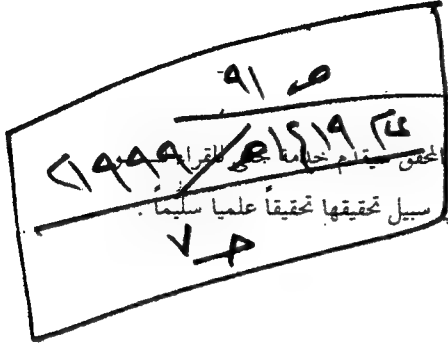 ص ٩١
١٤١٩هـ / ١٩٩٩م
المحقق سيقدم خدمة جلى للقراء
سبيل تحقيقها تحقيقاً علمياً سليماً .
ص ٧